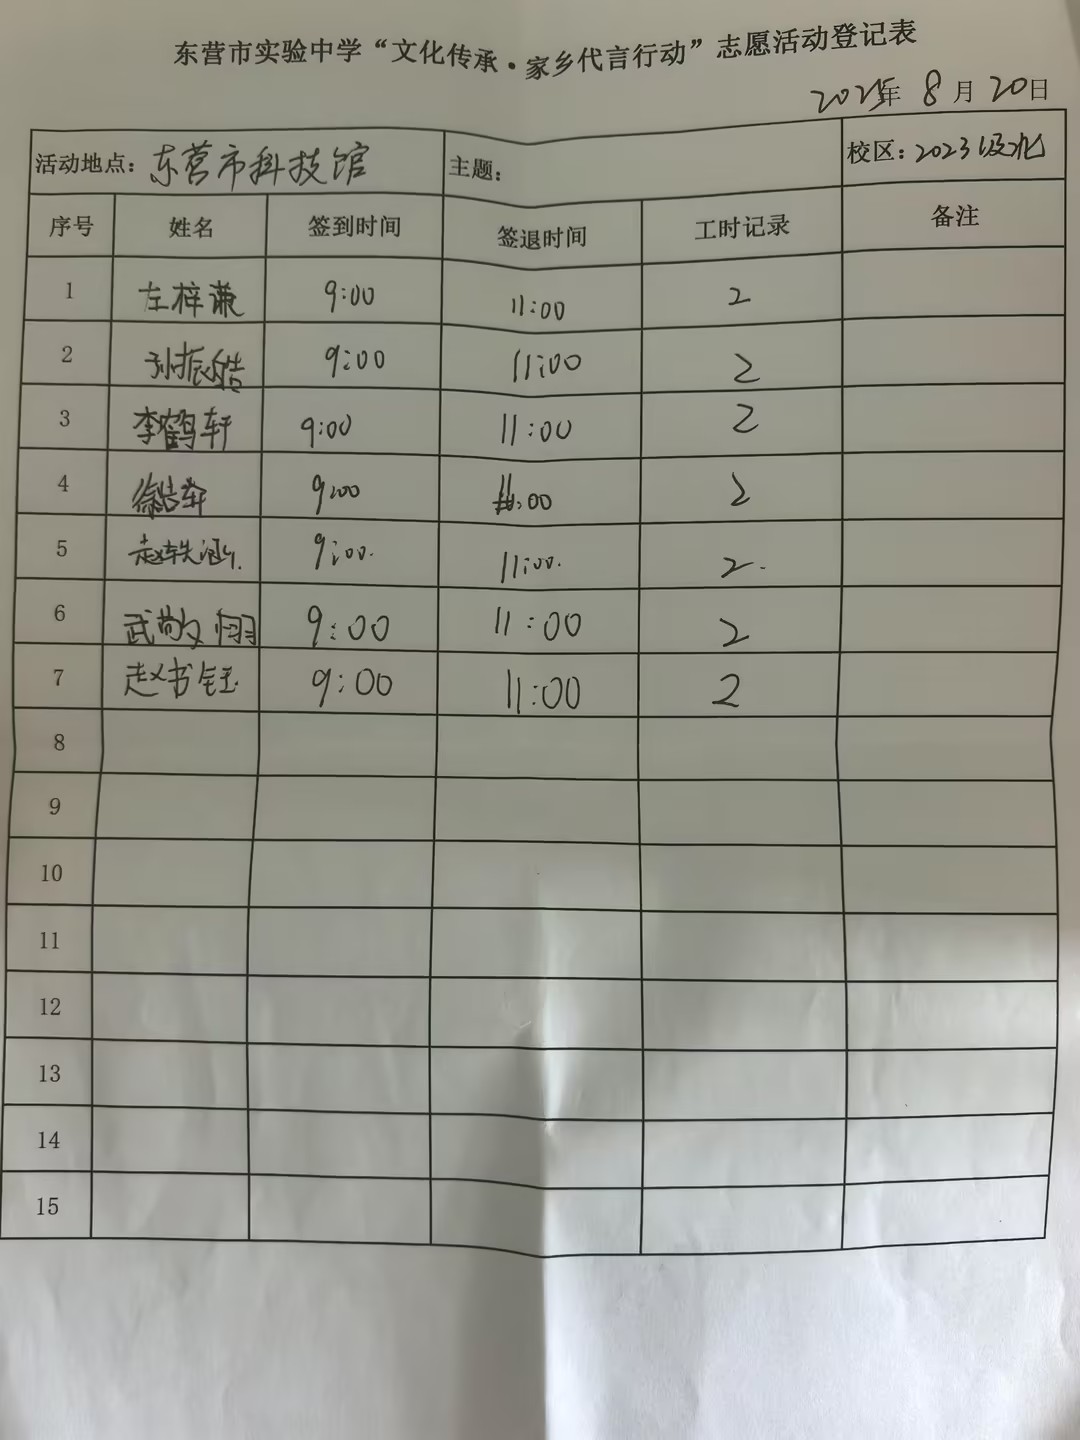 东营市实验中学“文化传承·家乡代言行动”志愿活动登记表
2025年 8月 20日
活动地点：东营市科技馆 主题： 校区：2023级北
序号 姓名 签到时间 签退时间 工时记录 备注
1 左梓谦 9:00 11:00 2
2 孙振皓 9:00 11:00 2
3 李鹤轩 9:00 11:00 2
4 徐浩轩 9:00 11:00 2
5 赵轶涵 9:00 11:00 2
6 武敬翔 9:00 11:00 2
7 赵书钰 9:00 11:00 2
8
9
10
11
12
13
14
15